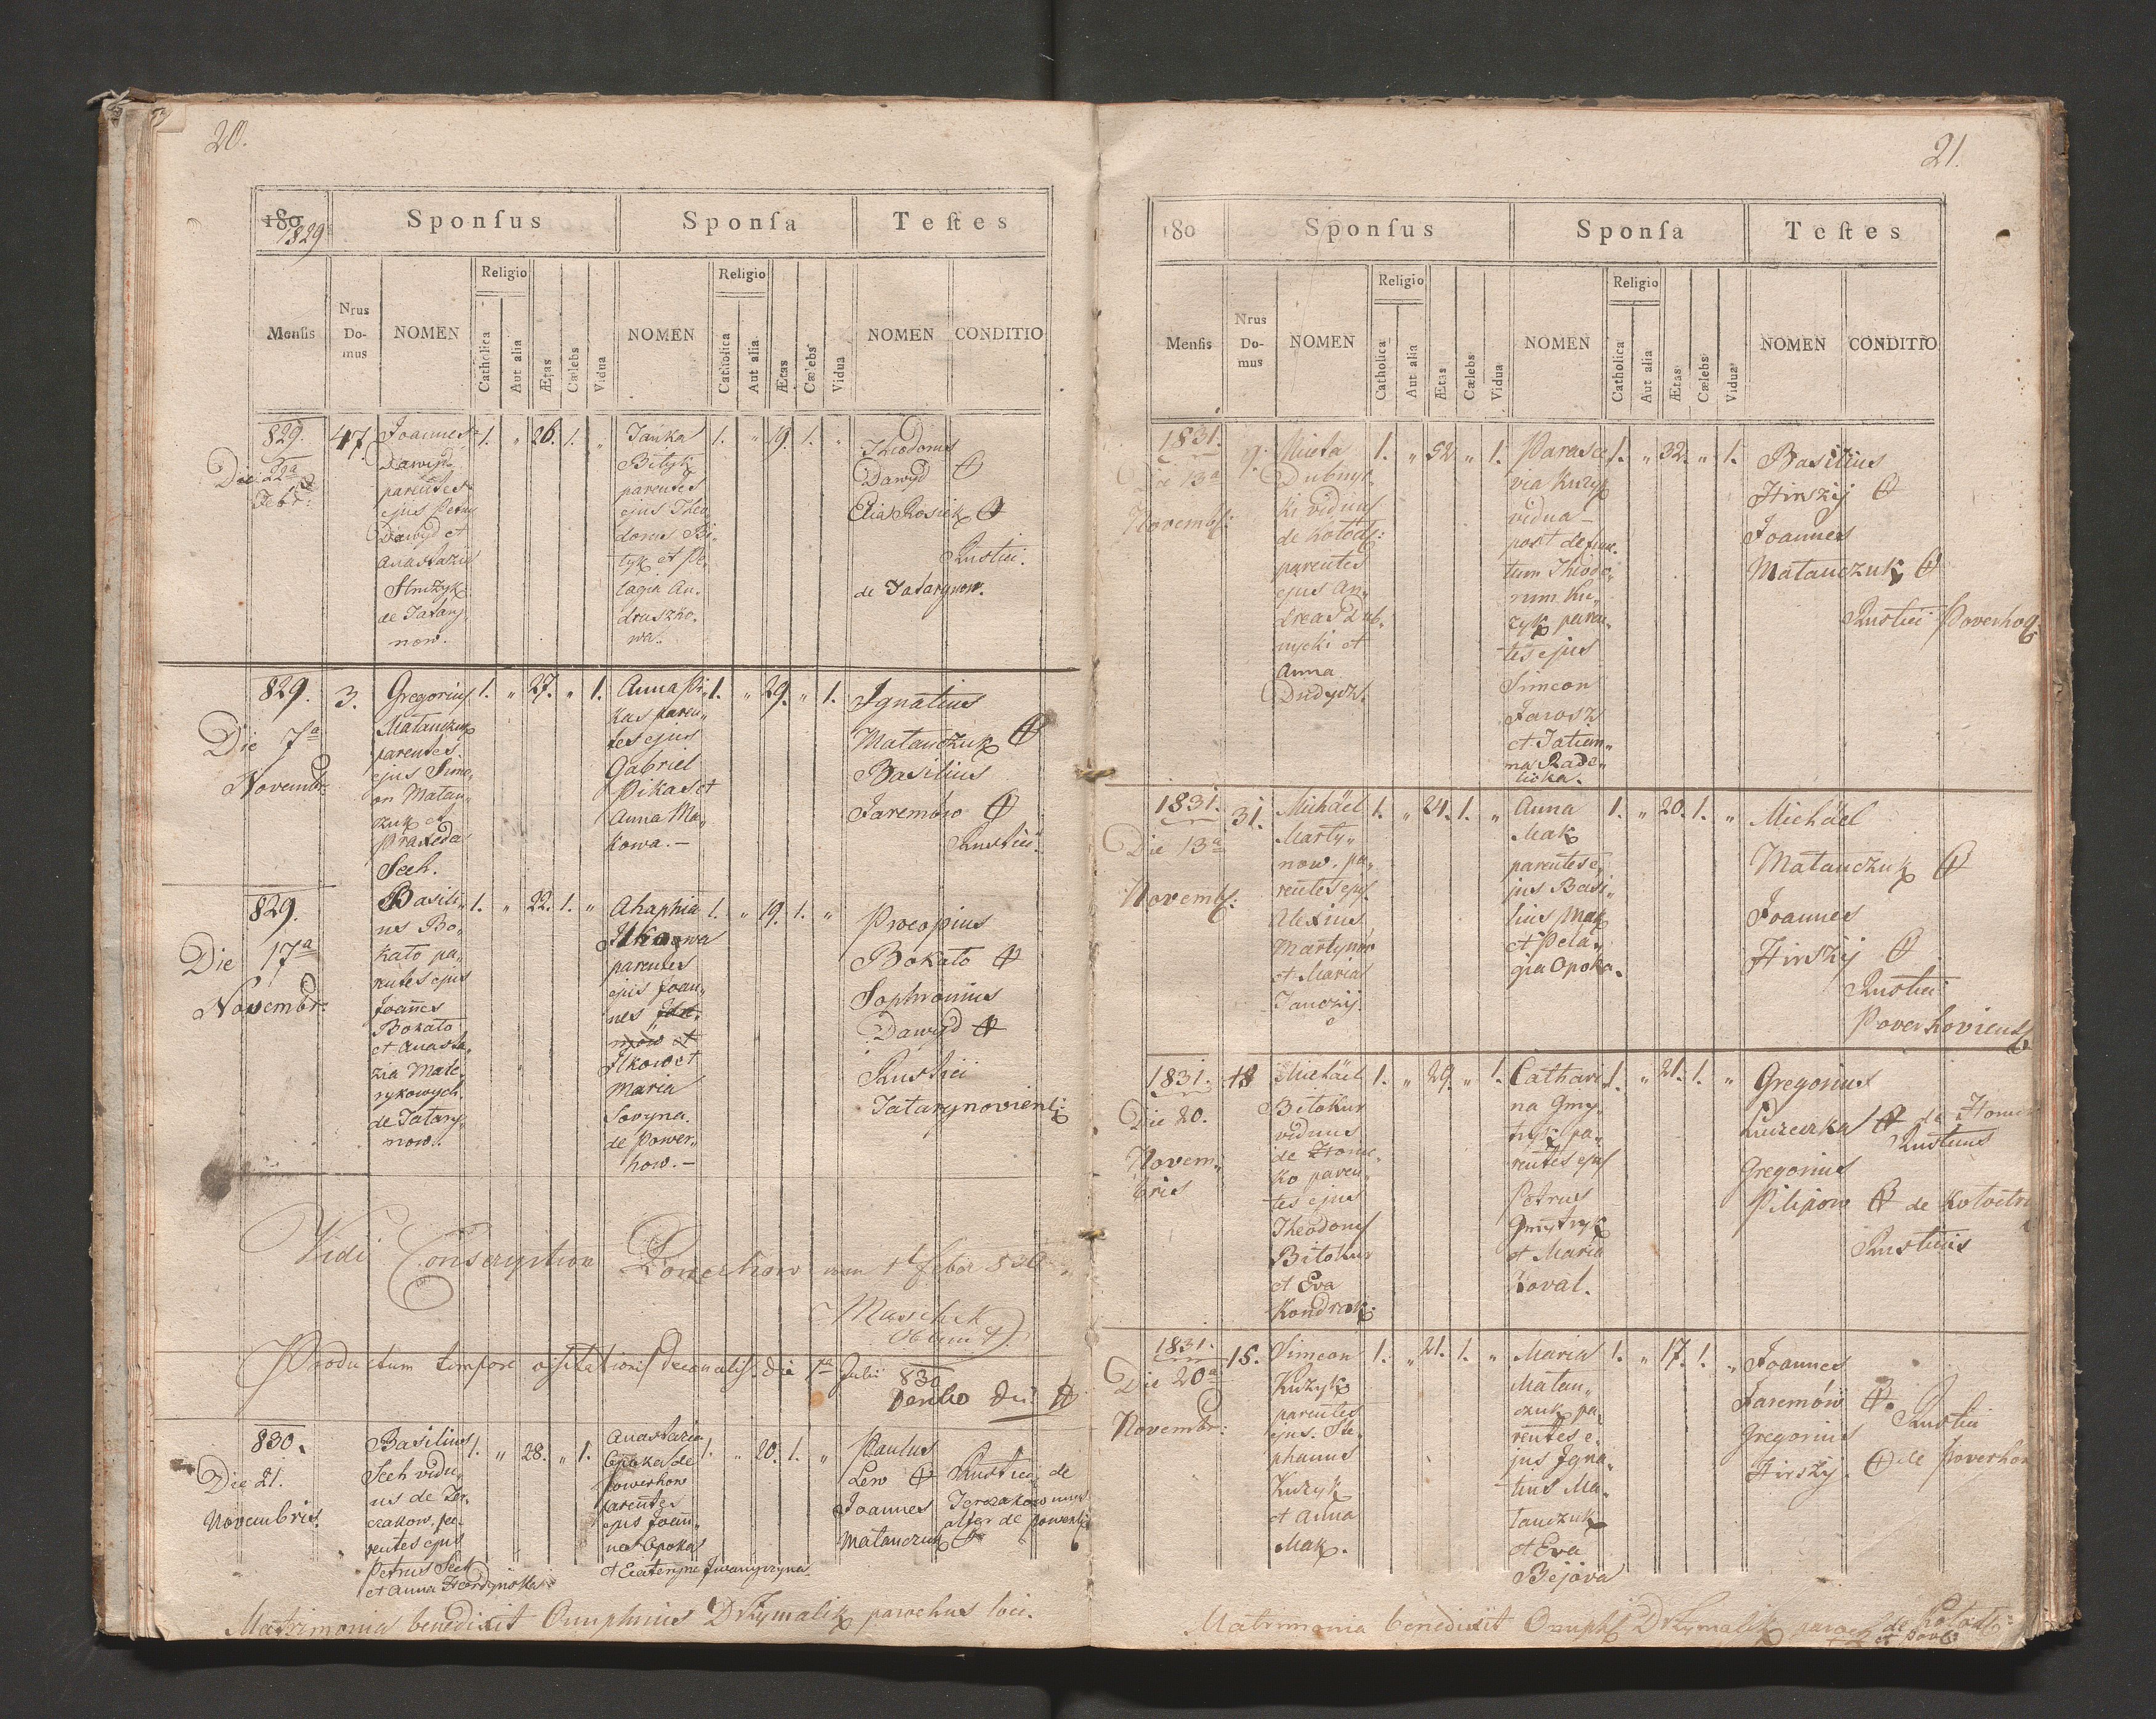 20.
180 1829
Sponſus
Sponſa
Teſtes
Menſis
Nrus Do- mus
NOMEN
Religio
Catholica
Aut alia
Ætas
Cælebs
Vidua
NOMEN
Religio
Catholica
Aut alia
Ætas
Cælebs
Vidua
NOMEN
CONDITIO
829.
Die 22a
Febr:
47.
Joannes
Dawyd
parentes
ejus Petrus
Dawyd et
Anastazia
Struzyk
de Tatary„
now.
1. „ 26. 1. „
Janka
Bityk
parentes
ejus Theo„
dorus Bi„
tyk et Pe„
lagia An„
druszko„
wa.
1. „ 19. 1. „
Theodorus
Dawyd
Elia Rosiek
Rustici.
de Tatarynow.
829.
Die 7a
Novembr:
3.
Gregorius
Matanczuk
parentes
ejus Sime„
on Matan„
czuk et
Praxeda
Seeh.
1. „ 27. „ 1.
Anna Pi„
kas paren„
tes ejus
Gabriel
Pikas et
Anna Ma„
kowa.–
1. „ 29. „ 1.
Ignatius
Matanczuk
Basilius
Jaremów
Rustici.
829.
Die 17a
Novembr:
Basili„
us Bo„
kato pa„
rentes ejus
Joañes
Bokato
et Anasta„
zia Mate„
rykowych.
de Tatary„
now.
1. „ 22. 1. „
Ahaphia
Ilkowa
parentes
ejus Joan„
nes
et
Ilkow et
Maria
Sovyna.
de Power„
how.–
1. „ 19. 1. „
Procopius
Bokato
Sophronius
Dawyd
Rustici
Tatarynoviens:
Vidi Conscription Powerhow am 1t febr 830
Maschek
Productum tempore visitationis Decanalis die 7a Julii 830
830.
Die 21.
Novembris.
Basilius
Seeh vidu„
us de Ter„
czakow, pa„
rentes ejus
Petrus Seeh
et Anna Hordynska
1. „ 28. „ 1.
Anastazia
Opoka de
Powerhow
parentes
ejus Joan„
nes Opoka
et Ecateryna Iwanyczyna
1. „ 20. 1. „
Paulus
Lew Rustici, de
Joannes Terczakow unus
alter de Powerh:
Matanczuk
Matrimonia benedixit Onuphrius Drzymalik parochus loci.
21.
180
Sponſus
Sponſa
Teſtes
Menſis
Nrus Do- mus
NOMEN
Religio
Catholica
Aut alia
Ætas
Cælebs
Vidua
NOMEN
Religio
Catholica
Aut alia
Ætas
Cælebs
Vidua
NOMEN
CONDITIO
1831.
Die 13a
Novembr:
9.
Mieta
Dubnyc„
ki viduus
de Kołodr:
parentes
ejus An„
dreas Dub„
nycki et
Anna
Dudycz.
1. „ 52. „ 1.
Parasce
via Kuzyk
vidua–
post defunc„
tum Theodo„
rum Ku„
zyk paren„
tes ejus
Simeon
Jarosz
et Tatian„
na Rade„
licka.
1. „ 32. „ 1.
Basilius
Hirszij
Joannes
Matanczuk
Rustici Powerhov.
1831.
Die 13a
Novemb:
31.
Michäel
Marty„
now. pa„
rentes ejus
Alexius
Martynow
et Maria
Janczij
1. „ 24. 1. „
Anna
Mak
parentes e„
jus Basi„
lius Mak
et Pela„
gia Opoka.
1. „ 20. 1. „
Michäel
Matanczuk
Joannes
Hirszij
Rustici
Powerhoviens:
1831.
Die 20.
Novem„
bris
18
Michäel
Bitokur
viduus
de Hom„
ko paren„
tes ejus
Theodorus
Bitokur
et Eva
Kondrak.
1. „ 29. „ 1.
Cathari
na Gmy„
tryk pa„
rentes ejus
Petrus
Gmytryk
et Maria
Koval.
1. „ 21. 1. „
Gregorius
Rusticus
Gregorius
Pilipow
Rusticus
1831.
Die 20a
Novembr:
15.
Simeon
Kuzyk
parentes
ejus. Ste„
phanus
Kuzyk
et Anna
Mak.
1. „ 21. 1. „
Maria
Matan„
czuk pa„
rentes e„
jus Igna„
tius Ma„
tanczuk
et Eva
Bejova
1. „ 17. 1. „
Joannes
Jaremów
Rustici
Gregorius
Hirszij. de Powerhow
Matrimonia benedixit Onuph: Drzymalik paroch de Kolodr:
et Pow: